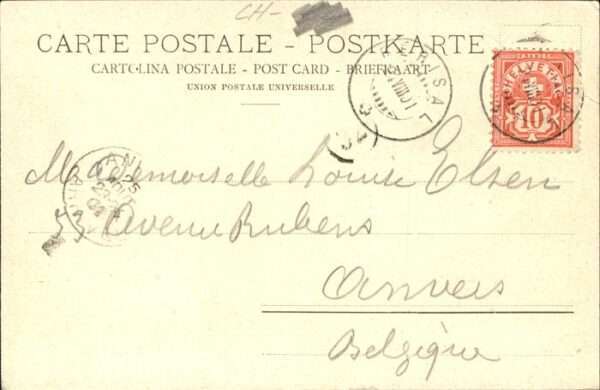 CH-
CARTE POSTALE - POSTKARTE
CARTOLINA POSTALE - POST CARD - BRIEFKAART
UNION POSTALE UNIVERSELLE
BERISAL
HELVETIA
10
Mademoiselle Louise Elsen
53 Avenue Rubens
Anvers
Belgique